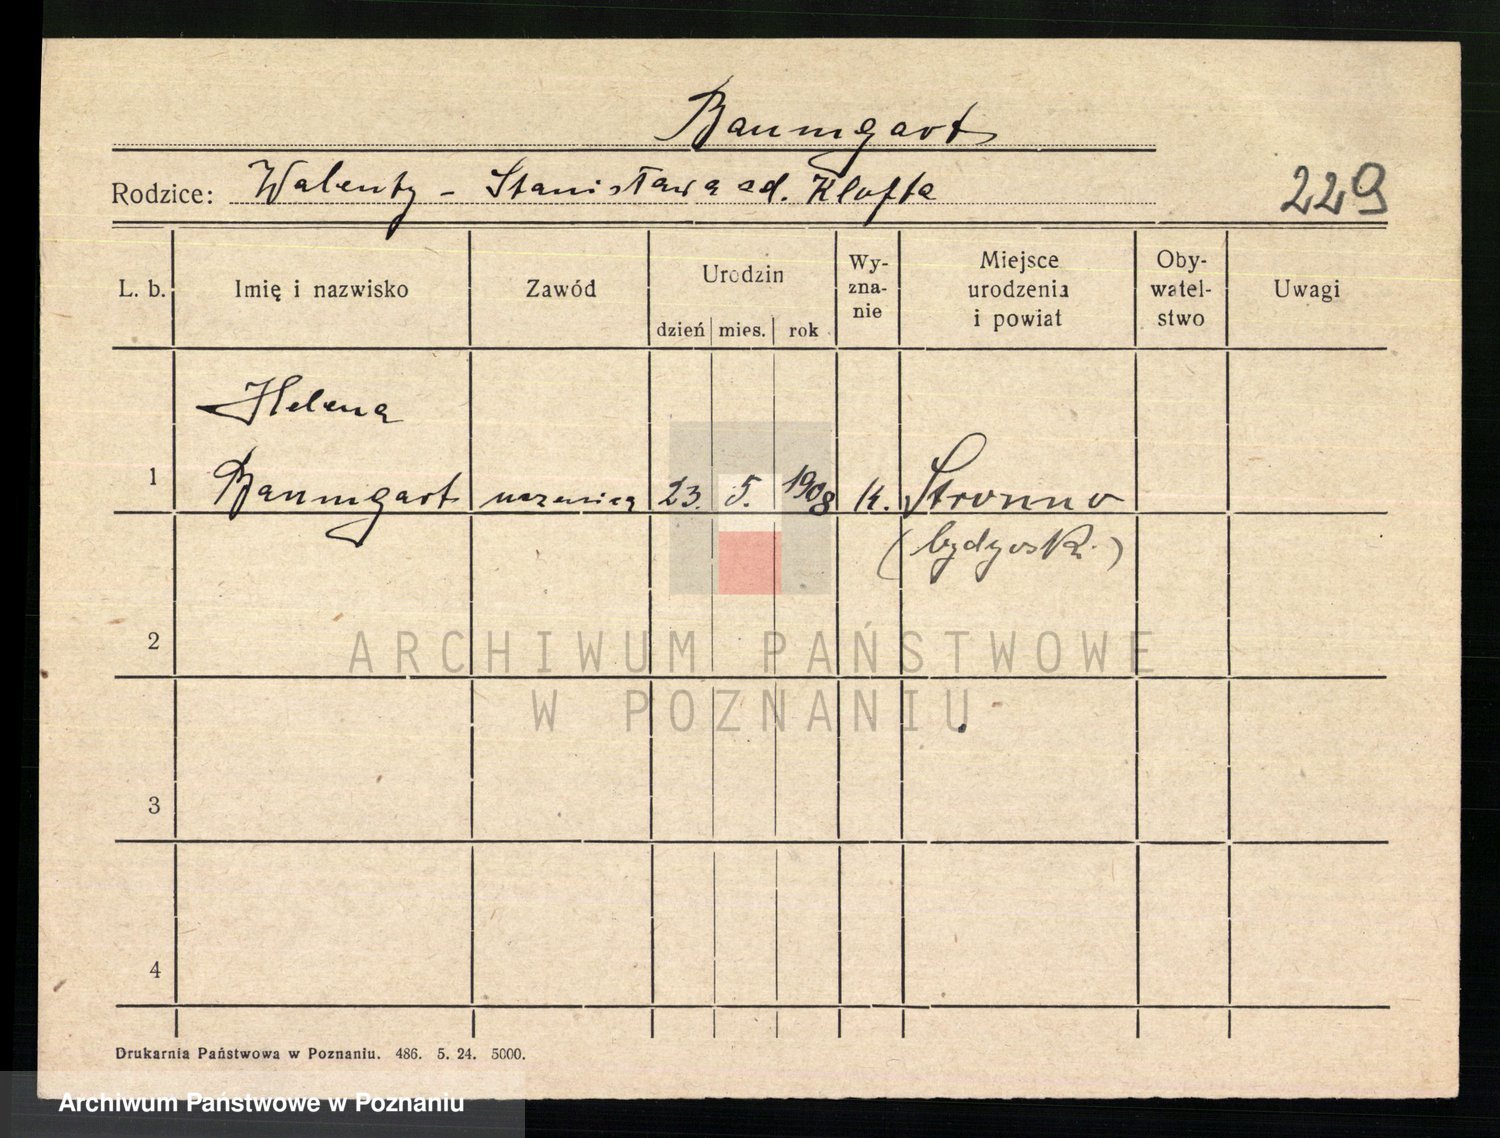 Baumgart
Rodzice: Walenty - Stanisława ad. Klofta
229
L. b. Imię i nazwisko Zawód Urodzin Wy-zna-nie Miejsce urodzenia i powiat Oby-watel-stwo Uwagi
dzień mies. rok
Helena
1 Baumgart uczenica 23. 5. 1908 K. Stronno
(bydgosk.)
2
ARCHIWUM PAŃSTWOWE
W POZNANIU
3
4
Drukarnia Państwowa w Poznaniu. 486. 5. 24. 5000.
Archiwum Państwowe w Poznaniu